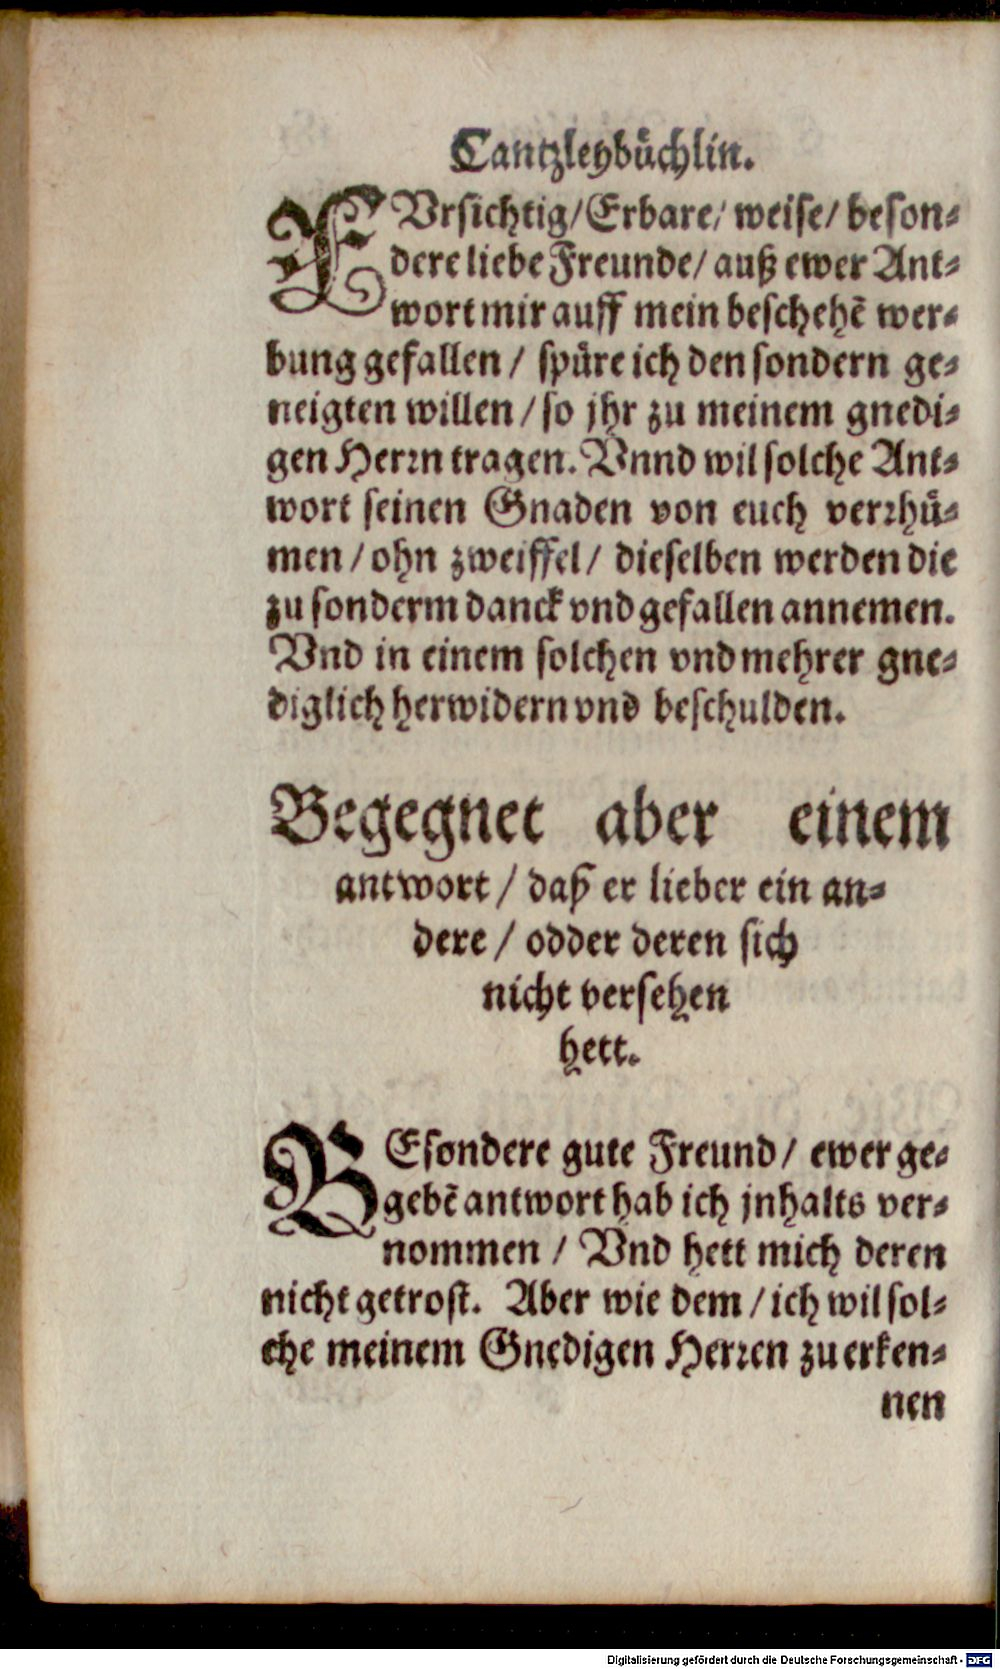 Cantzleybüchlin.
FVrsichtig/Erbare/ weise/ beson-
dere liebe Freunde/ auß ewer Ant-
wort mir auff mein beschehē wer-
bung gefallen / spüre ich den sondern ge-
neigten willen / so jhr zu meinem gnedi-
gen Herrn tragen. Vnnd wil solche Ant-
wort seinen Gnaden von euch verrhü-
men / ohn zweiffel / dieselben werden die
zu sonderm danck vnd gefallen annemen.
Vnd in einem solchen vnd mehrer gne-
diglich herwidern vnd beschulden.
Begegnet aber einem
antwort / daß er lieber ein an-
dere / odder deren sich
nicht versehen
hett.
BEsondere gute Freund / ewer ge-
gebē antwort hab ich jnhalts ver-
nommen / Vnd hett mich deren
nicht getrost. Aber wie dem / ich wil sol-
che meinem Gnedigen Herren zu erken-
nen
Digitalisierung gefördert durch die Deutsche Forschungsgemeinschaft - DFG